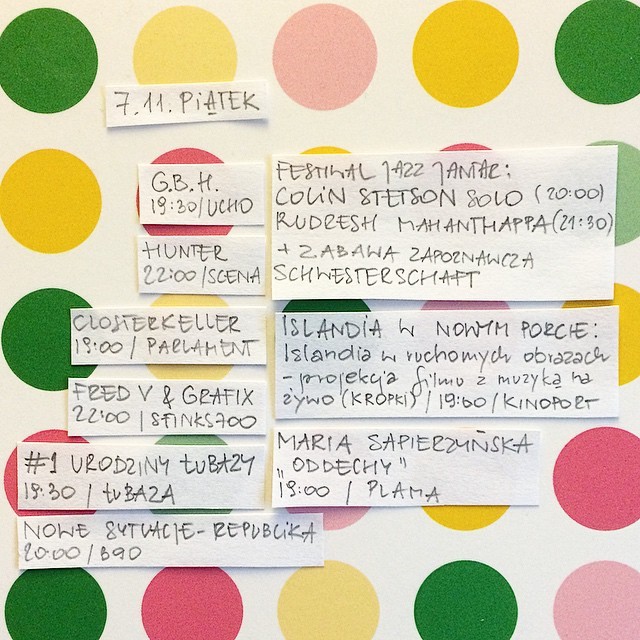 7.11. PIĄTEK
G.B.H.
19:30/UCHO
HUNTER
22:00/SCENA
CLOSTERKELLER
19:00 / PARLAMENT
FRED V & GRAFIX
22:00 / SFINKS700
#1 URODZINY ŁUBAZY
19:30 / ŁUBAZA
NOWE SYTUACJE - REPUBLIKA
20:00/B90
FESTIWAL JAZZ JANTAR:
COLIN STETSON SOLO (20:00)
RUDRESH MAHANTHAPPA (21:30)
+ ZABAWA ZAPOZNAWCZA
SCHWESTERSCHAFT
ISLANDIA W NOWYM PORCIE:
Islandia w ruchomych obrazach
- projekcja filmu z muzyką na
żywo (KROPKI) / 19:00 / KINOPORT
MARIA SAPIERZYŃSKA
"ODDECHY"
19:00 / PLAMA